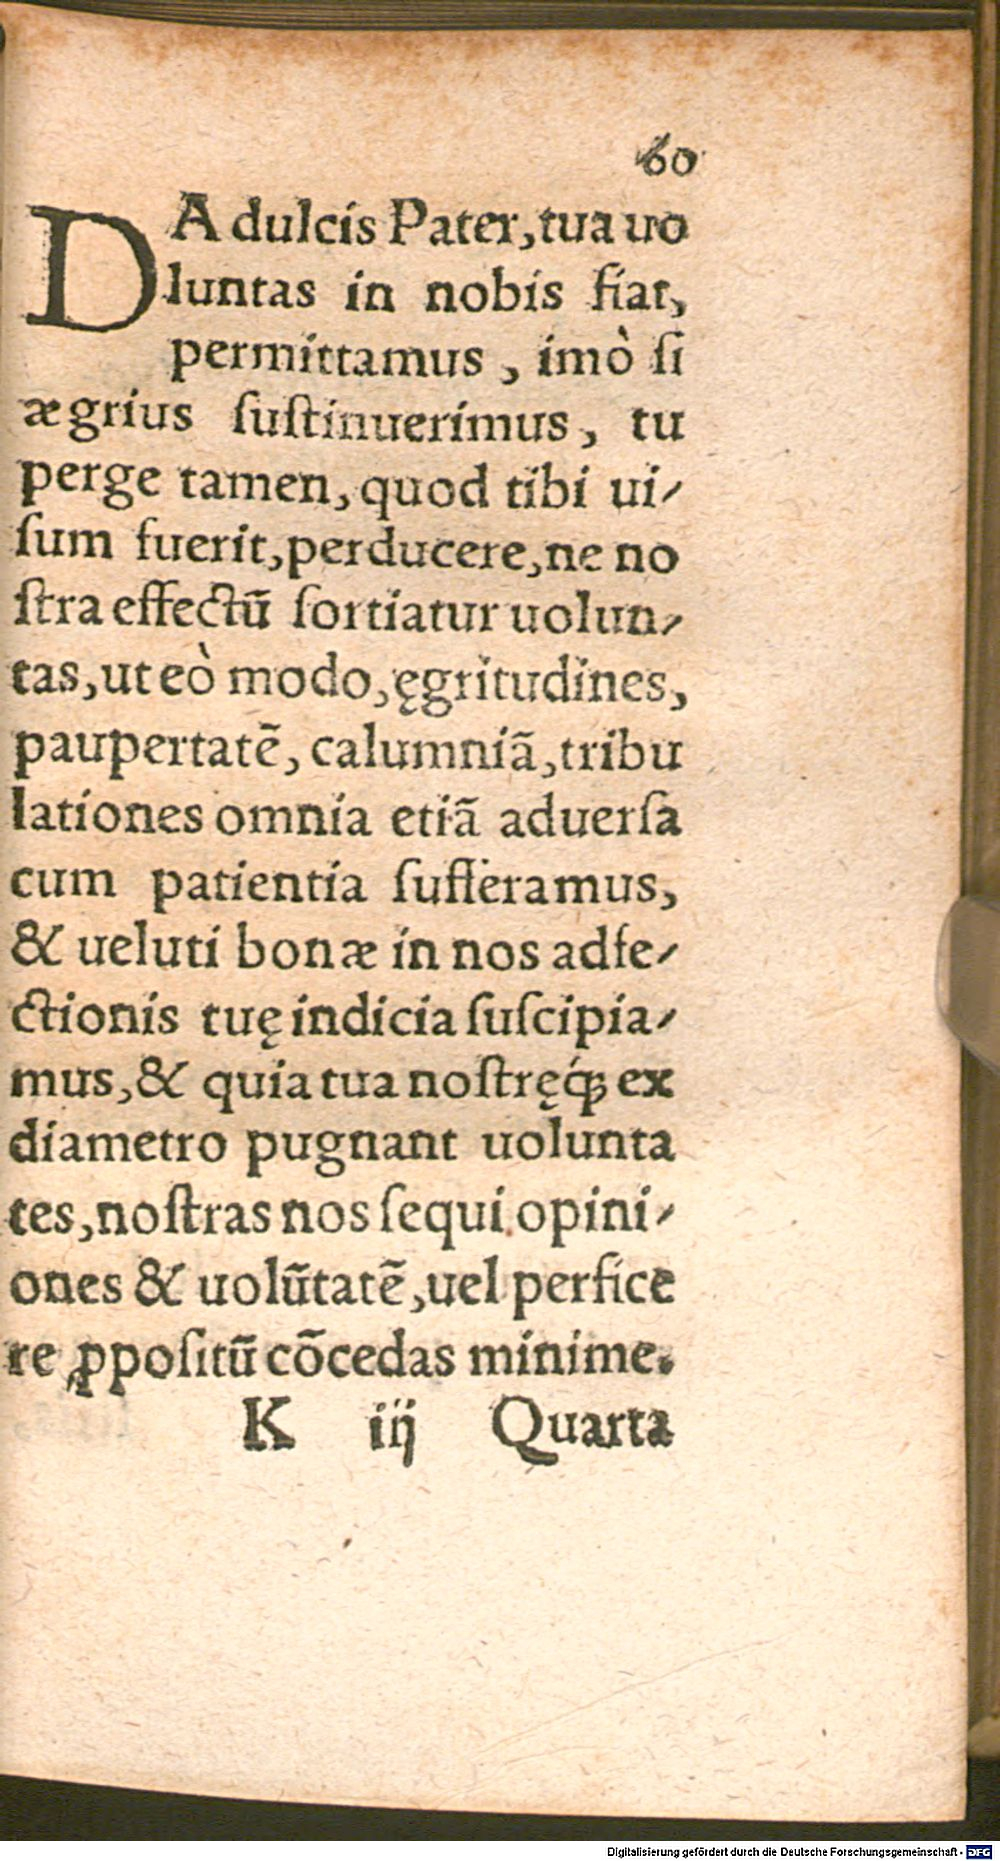 60
DA dulcis Pater, tua uo
luntas in nobis fiat,
permittamus, imò si
ægrius ſuſtinuerimus, tu
perge tamen, quod tibi ui⸗
ſum fuerit, perducere, ne no
ſtra effectū ſortiatur uolun⸗
tas, ut eò modo, ęgritudines,
paupertatē, calumniā, tribu
lationes omnia etiā aduerſa
cum patientia ſufferamus,
& ueluti bonæ in nos adfe⸗
ctionis tuę indicia ſuſcipia⸗
mus, & quia tua noſtręq́ꝫ ex
diametro pugnant uolunta
tes, noſtras nos ſequi opini⸗
ones & uolūtatē, uel perfice
re ꝓpoſitū cōcedas minime.
K iij Quarta
Digitalisierung gefördert durch die Deutsche Forschungsgemeinschaft - DFG